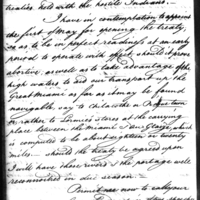 treaties held with the hostile Indians.
I have in contemplation to approve
the first of May for opening the treaty,
so as to be in perfect readiness at an early
period to operate with effect should it prove
abortive, as well as to take advantage of the
high waters to aid our transport up the
Great Miami as far as may be found
navigable, say to Chilacothe or Pique town
or rather to Lormie's stores at the carrying
place between the Miami & Au Glaize, which
is computed to be about eighteen or twenty
miles — should the treaty be agreed upon
I will have those rivers & the portage well
reconnoitred in due season —
Permit me now to call your